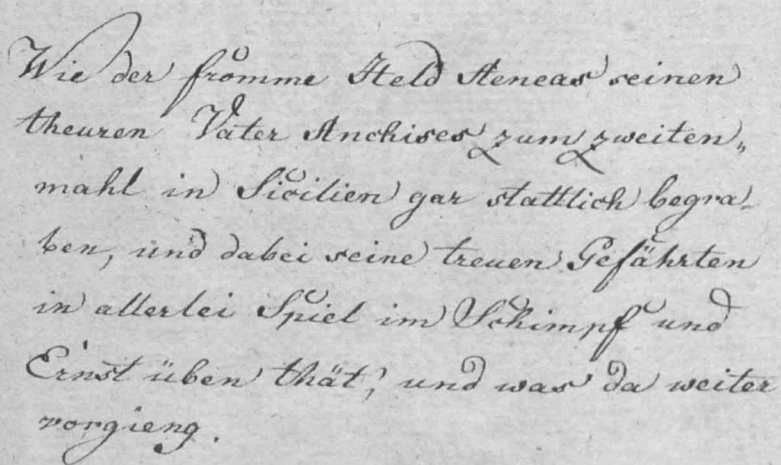 Wie der fromme Held Aeneas seinen
theuren Vater Anchises zum zweiten„
mahl in Sicilien gar stattlich begra-
ben, und dabei seine treuen Gefährten
in allerlei Spiel im Schimpf und
Ernst üben thät, und was da weiter
vorgieng.